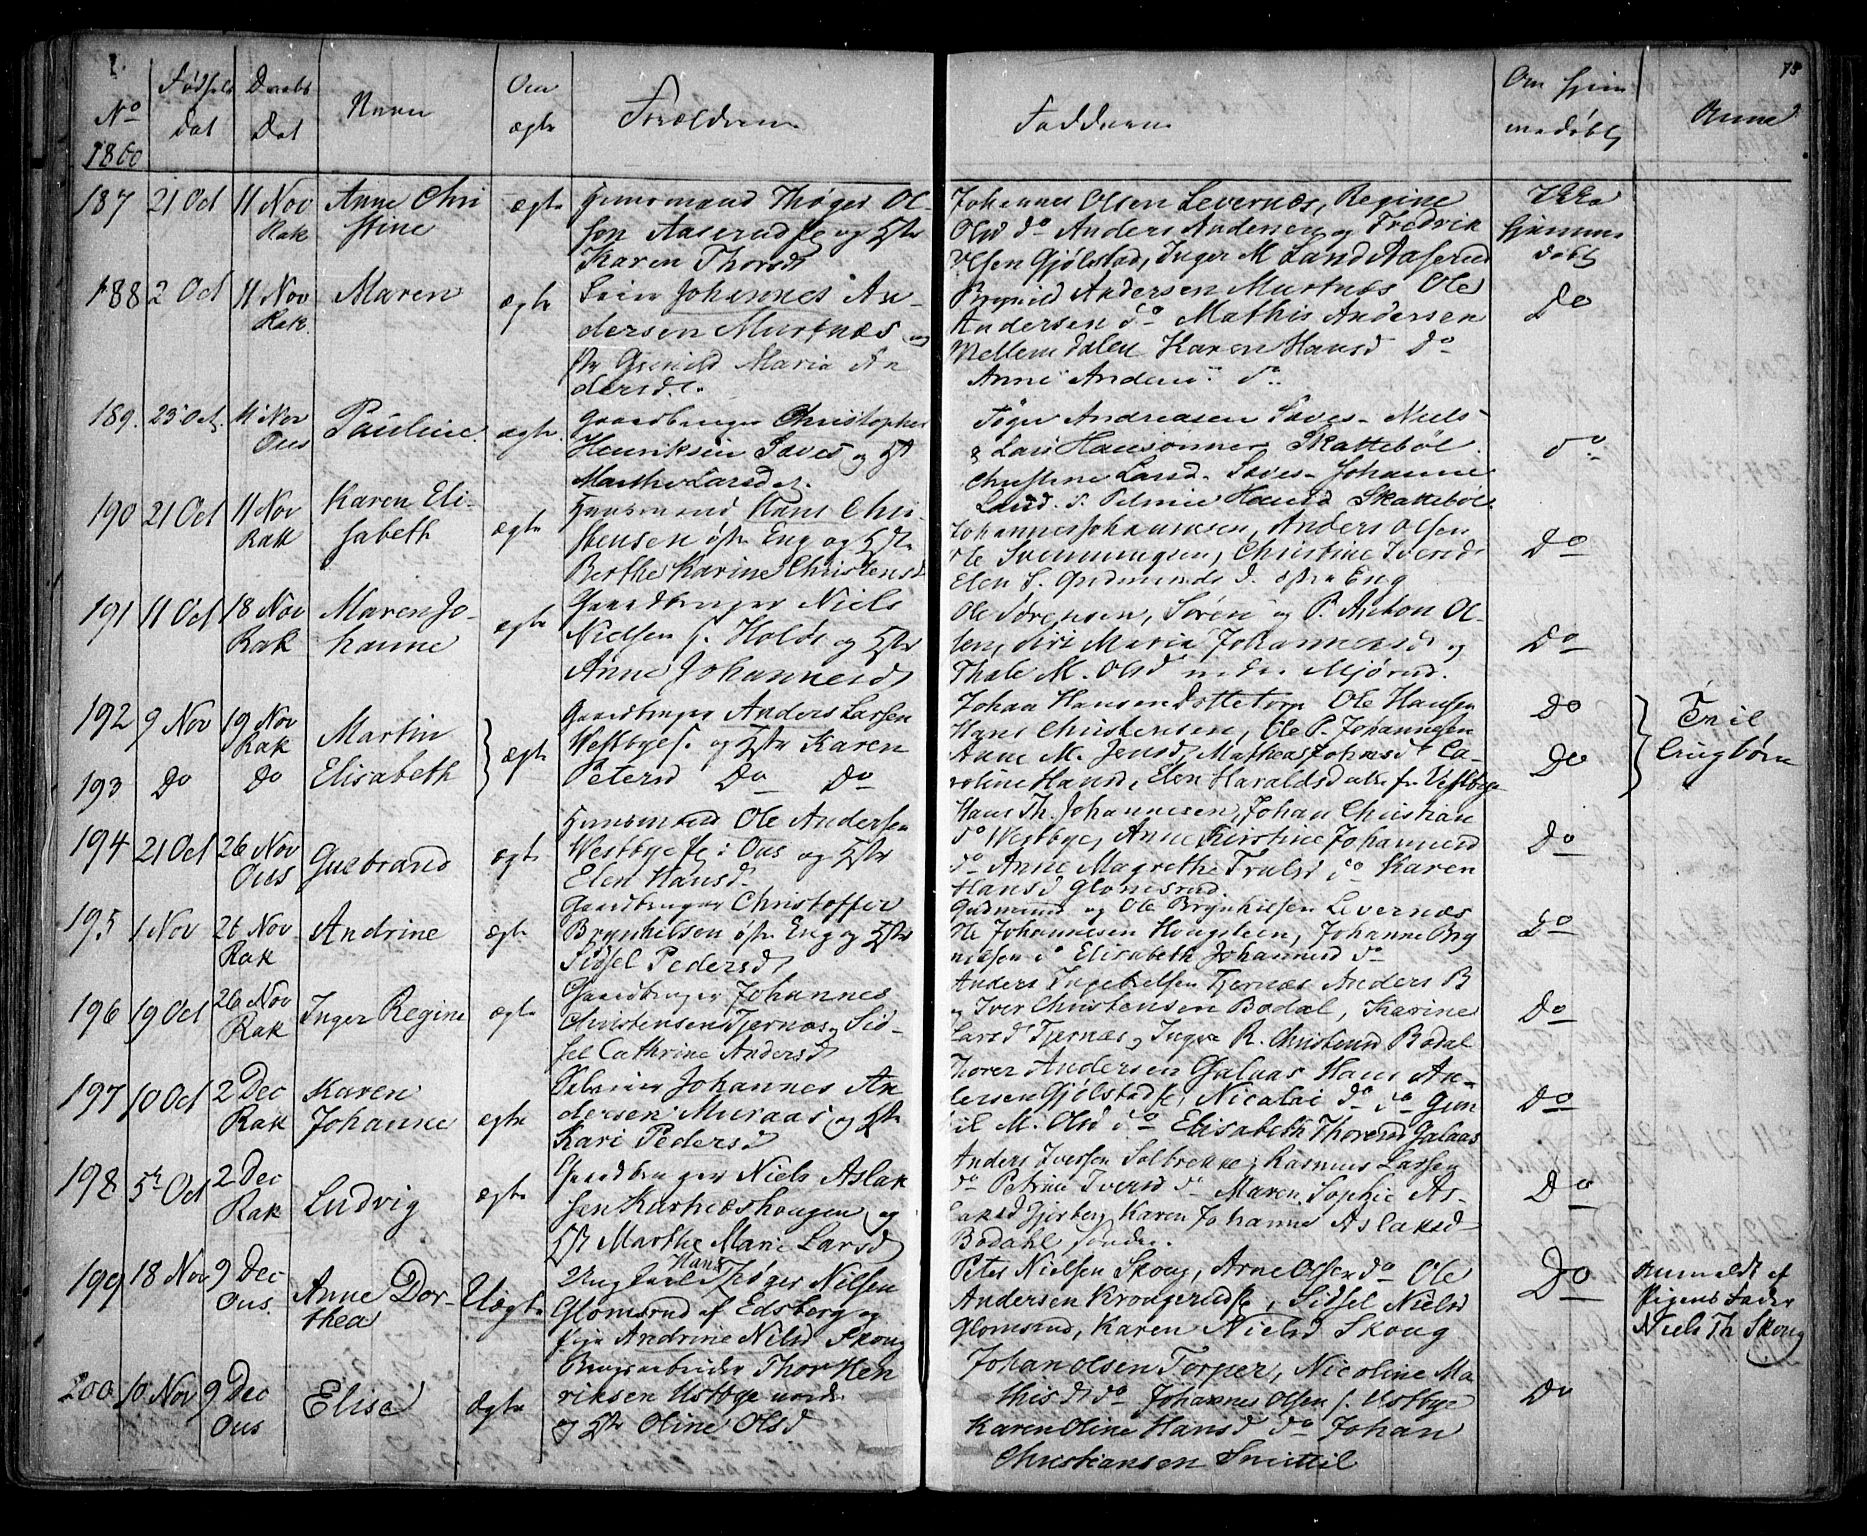 No
1860
Fødsels
dat
Daabs
Dat
Navn
Om
ægte
Forældrene
Fadderne
Om hjem
medøbt
Anm
75
187 21 Oct 11 Nov Anne Chri ægte Huusmand Thøger Ol-
Rak stine sen Aaserud og Hstr
Karen Thorsd
Johannes Olsen Levernæs, Regine
Olsd do Anders Andersen og Fredrik
Olsen Gjølstad, Inger M Aaserud
Ikke
hjemme
døbt
188 2 Oct 11 Nov Maren ægte Johannes An-
Rak. dersen Murtnæs og
Maria An
dersd.
Andersen Murtnæs Ole
Andersen do Mathis Andersen
Mellemdalen Karen Hansd Do
Anne do
Do
189. 25 Oct. 11 Nov Pauline. ægte. Gaardbruger Christopher
Ous Henriksen og H
Marthe Larsdt.
Andreasen Niels
& Lars Hansønner Skattebøl.
Christine Larsd. Johanne
Larsd. Hansd Skattebøl.
do
190 21 Oct 11 Nov Karen Eli- ægte Huusmand Hans Chri-
Rak sabeth stensen østr Eng og Hstr
Berthe Karine Christensd
Johannes Johannesen, Anders Olsen
Ole Svenningsen, Christine Iversd
Elen S. Gudmundsd. østre Eng
Do
191 11 Oct 18 Nov Maren Jo- ægte Gaardbruger Niels
Rak hanne Nielsen s. Holøs og Hstr
Anne Johannesd
Ole Sørensen, Søren og P. Anton Ol-
sen, Siri Maria Johannesd og
Thale M. Olsd nedre Mjørud.
Do
192 9 Nov 19 Nov Martin ægte Gaardbruger Anders Larsen
Rak Westbye s. og Hstr Karen
193 Do Do Elisabeth Petersd Do Do
Johan Hansen Ole Hansen
Hans Christensen, Ole P. Johannesen
Anne M. Jensd, Mathea Johnsd Ca-
roline Hansd, Elen Haraldsd alle fr. Vestbye
Do
Do
Tvil
lingbørn
194 21 Oct 26 Nov Gulbrand ægte Huusmand Ole Andersen
Ous Westbye i Ous og Hstr
Elen Hansd.
Hans Th. Johannesen, Johan Christian
do Westbye, Anne Kirstine Johannesd
do Anne Magrethe Trulsd do Karen
Hansd Glomsrud.
Do
195 1 Nov 26 Nov Andrine ægte Gaardbruger Christoffer
Rak Brynhilsen østr Eng og Hstr
Sidsel Pedersd
Gudmund og Ole Brynhilsen Levernæs
Ole Johannesen Haugsteen, Johanne Bry
nilsen do Elisabeth Johannesd do
Do
196 19 Oct 26 Nov Inger Regine ægte Gaardbruger Johannes
Rak Christensen Tjernæs og Sid-
sel Cathrine Andersd
Anders Ingebretsen Tjernæs Anders B
og Iver Christensen Bodal, Karine
Larsd Tjernæs, Inger R. Christensd Bodal
Do
197 10 Oct 2 Dec Karen ægte Johannes An-
Rak Johanne dersen Muraas og Hstr
Kari Pedersd
Thorer Andersen Galaas Hans An-
dersen Gjølstad, Nicolai do do Gun
il M. Olsd do Elisabeth Thorersd Galaas
Do
198 5te Oct 2 Dec Ludvig ægte Gaardbruger Niels Aslak
Rak sen Kurtnæshaugen og
Hstr Marthe Marie Larsd
Anders Iversen Solbrekke, Rasmus Larsen
do Petrine Iversd do Maren Sophie As-
laksd Gjersberg Karen Johanne Aslaksd
Bodahl søndre.
Do
199 18 Nov 9 Dec Anne Dor- Uægte Ungkarl Hans Thøger Nielsen
Ous. thea Glomsrud af Edsberg og
Pige Andrine Nilsd Skoug
Peter Nielsen Skoug, Arne Olsen do Ole
Andersen Krogerud, Sidsel Nielsd
Glomsrud, Karen Nielsd Skoug
Do
Anmeldt af
Pigens Fader
Niels Th. Skoug
200. 10 Nov 9 Dec Elise Ægte Brugsarbeider Thor Hen
Ous riksen Ustbye nordr
og Hstr Oline Olsd
Johan Olsen Torper, Nicoline Ma
thisd do Johannes Olsen s. Ustbye
Karen Oline Hansd do Johan
Christiansen Smittil
Do